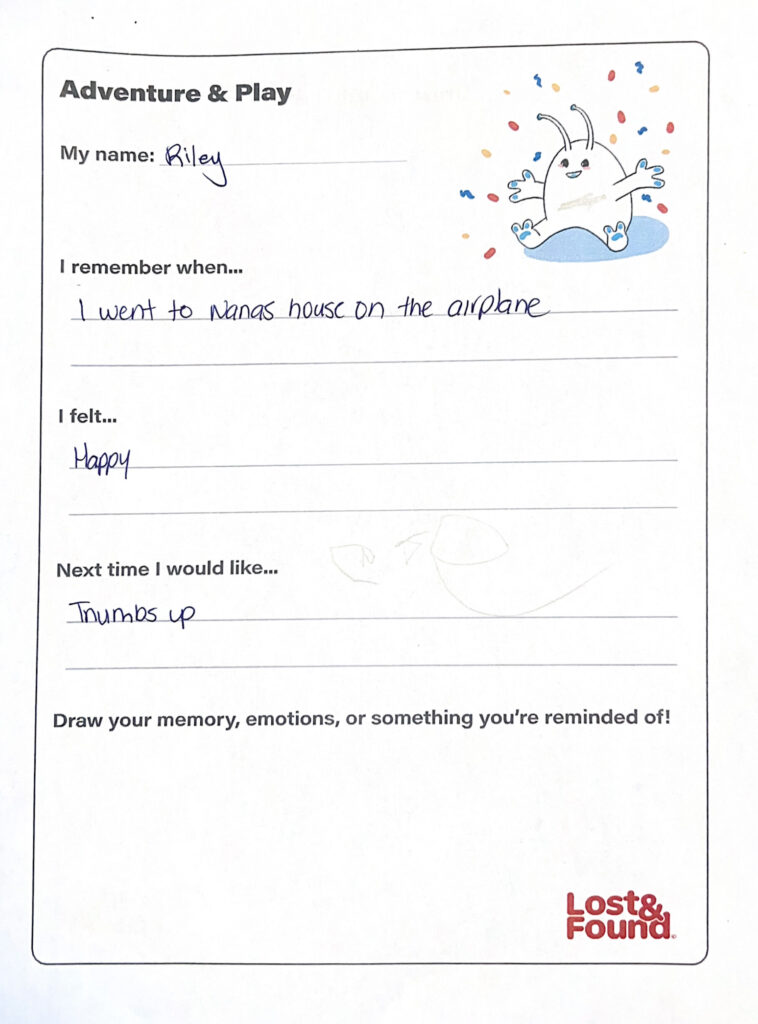 Adventure & Play
My name: Riley
I remember when...
I went to Nanas house on the airplane
I felt...
Happy
Next time I would like...
Thumbs up
Draw your memory, emotions, or something you're reminded of!
Lost&
Found